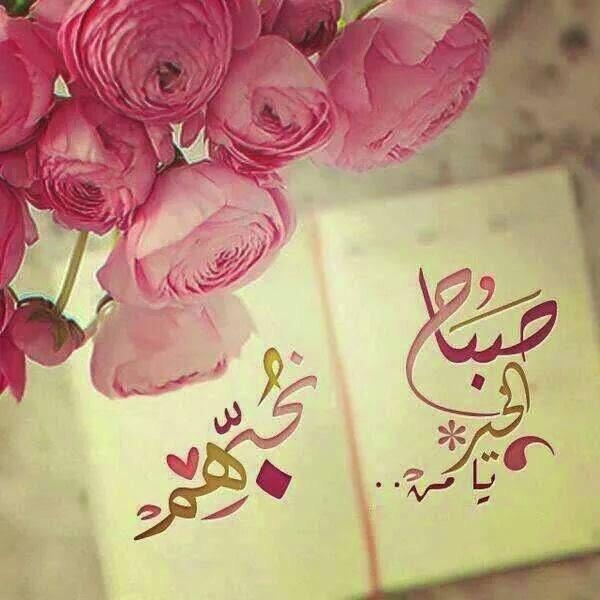 صَبَاح
الخير
يا من..
نُحبّهم